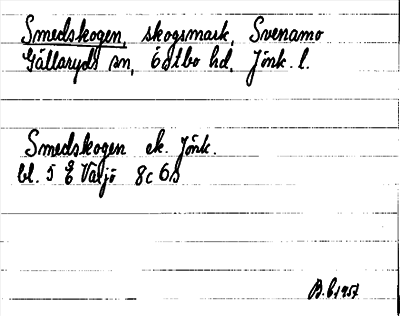 Smedskogen, skogsmark, Svenamo
Gällaryds sn, Östbo hd, Jönk. l.
Smedskogen ek. Jönk.
bl. 5 E Växjö 8c 6s
B. b 1957